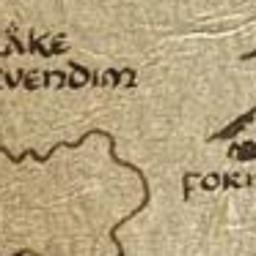 LAKE
EVENDIM
FORN